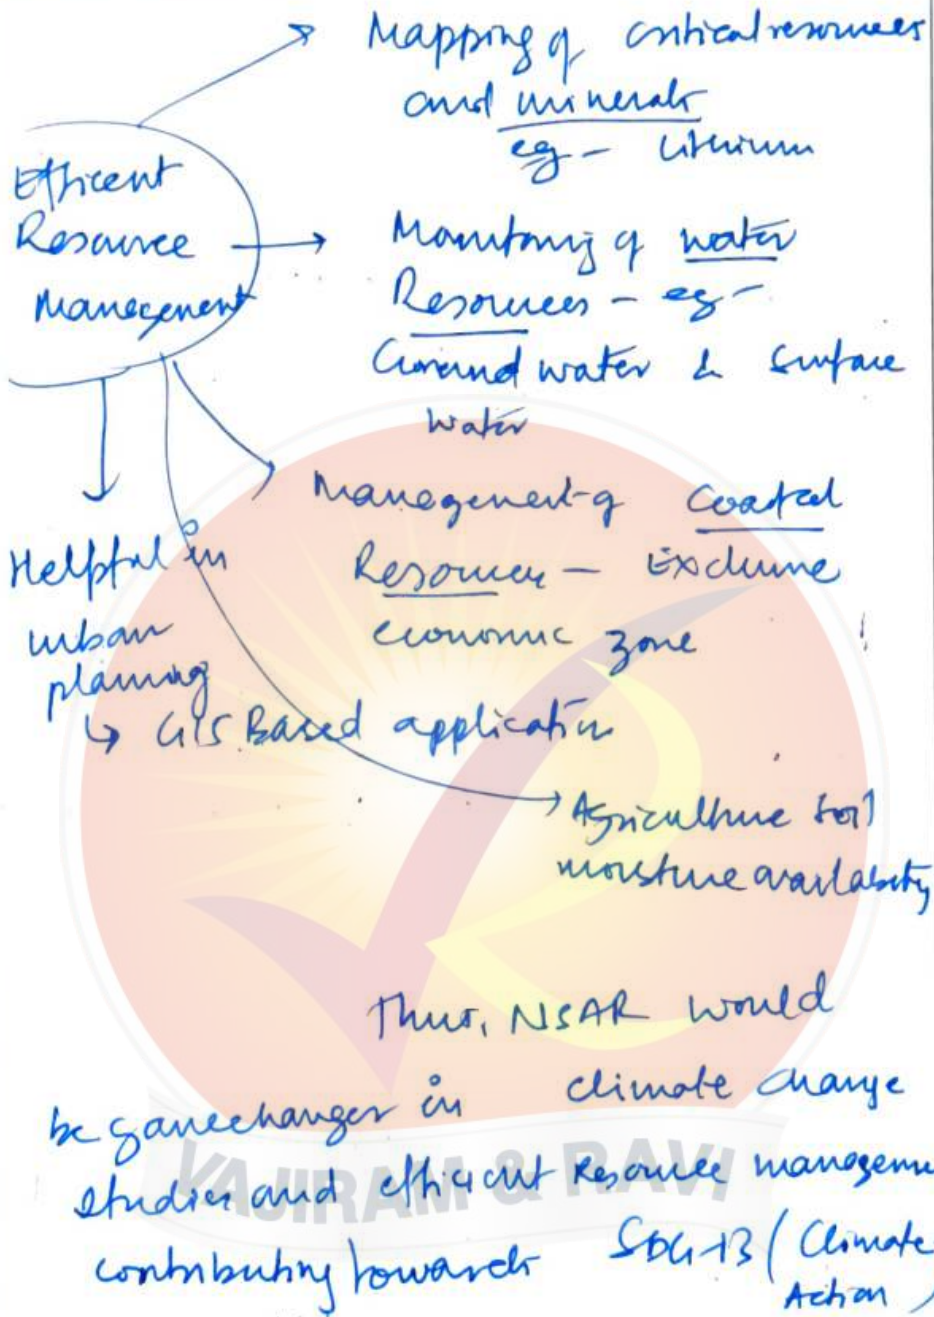 Mapping of critical resources
and minerals
eg - Lithium
Efficent
Resource
Management
Monitoring of water
Resources - eg -
Ground water & surface
water
Management of Coastal
Resources - Exclusive
economic zone
Helpful in
urban
planning
↳ GIS Based application
→ Agriculture soil
moisture availability
Thus, NISAR would
be gamechanger in climate change
studies and efficient Resource manageme
contributing towards SDG-13 (Climate
Action)
VAJIRAM & RAVI